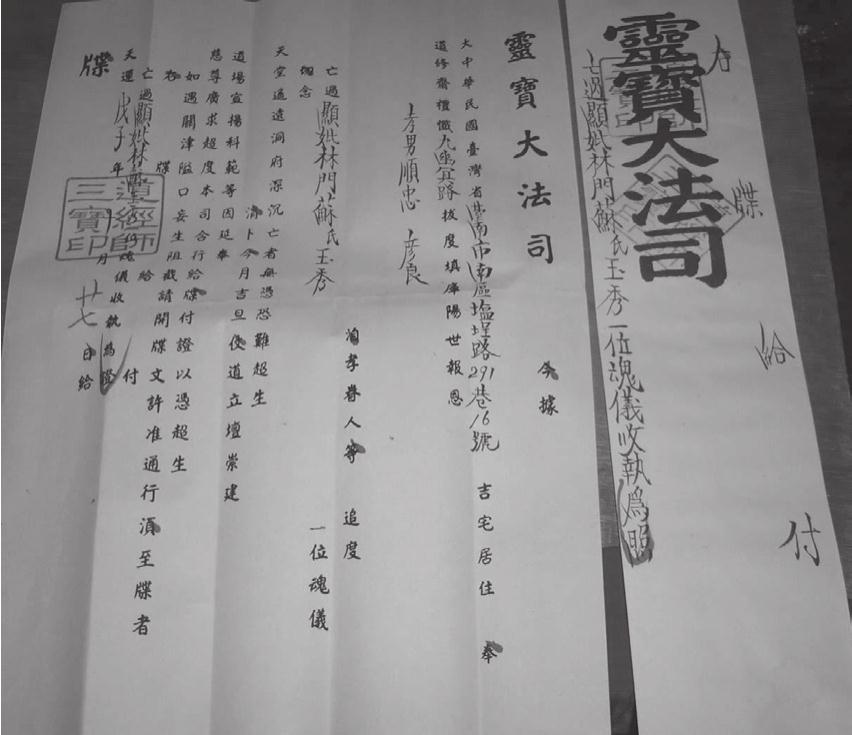 靈寶大法司
牒 給 付
亡過顯妣林門蘇氏玉秀一位魂儀收執為照
靈寶大法司
今據
大中華民國臺灣省臺南市南區塩埕路291巷16號 吉宅居住 奉
道修齋禮懺九幽宜路拔度填庫陽世報恩
孝男順忠 彥良
洎孝眷人等 追度
亡過顯妣林門蘇氏玉秀 一位魂儀
言念
天堂逍遠洞府深沉亡者無憑恐難超生
涓卜今月吉旦伏道立壇崇建
道場宣揚科範等因延奉
慈尊廣求超度本司合行給牒付證以憑超生
如遇關津隘口妄生阻截請開牒文許准通行須至牒者
牒 給 付
亡過顯妣林 魂儀收執為照
天運戊子年 月廿七日給
牒
道經師
三寶印